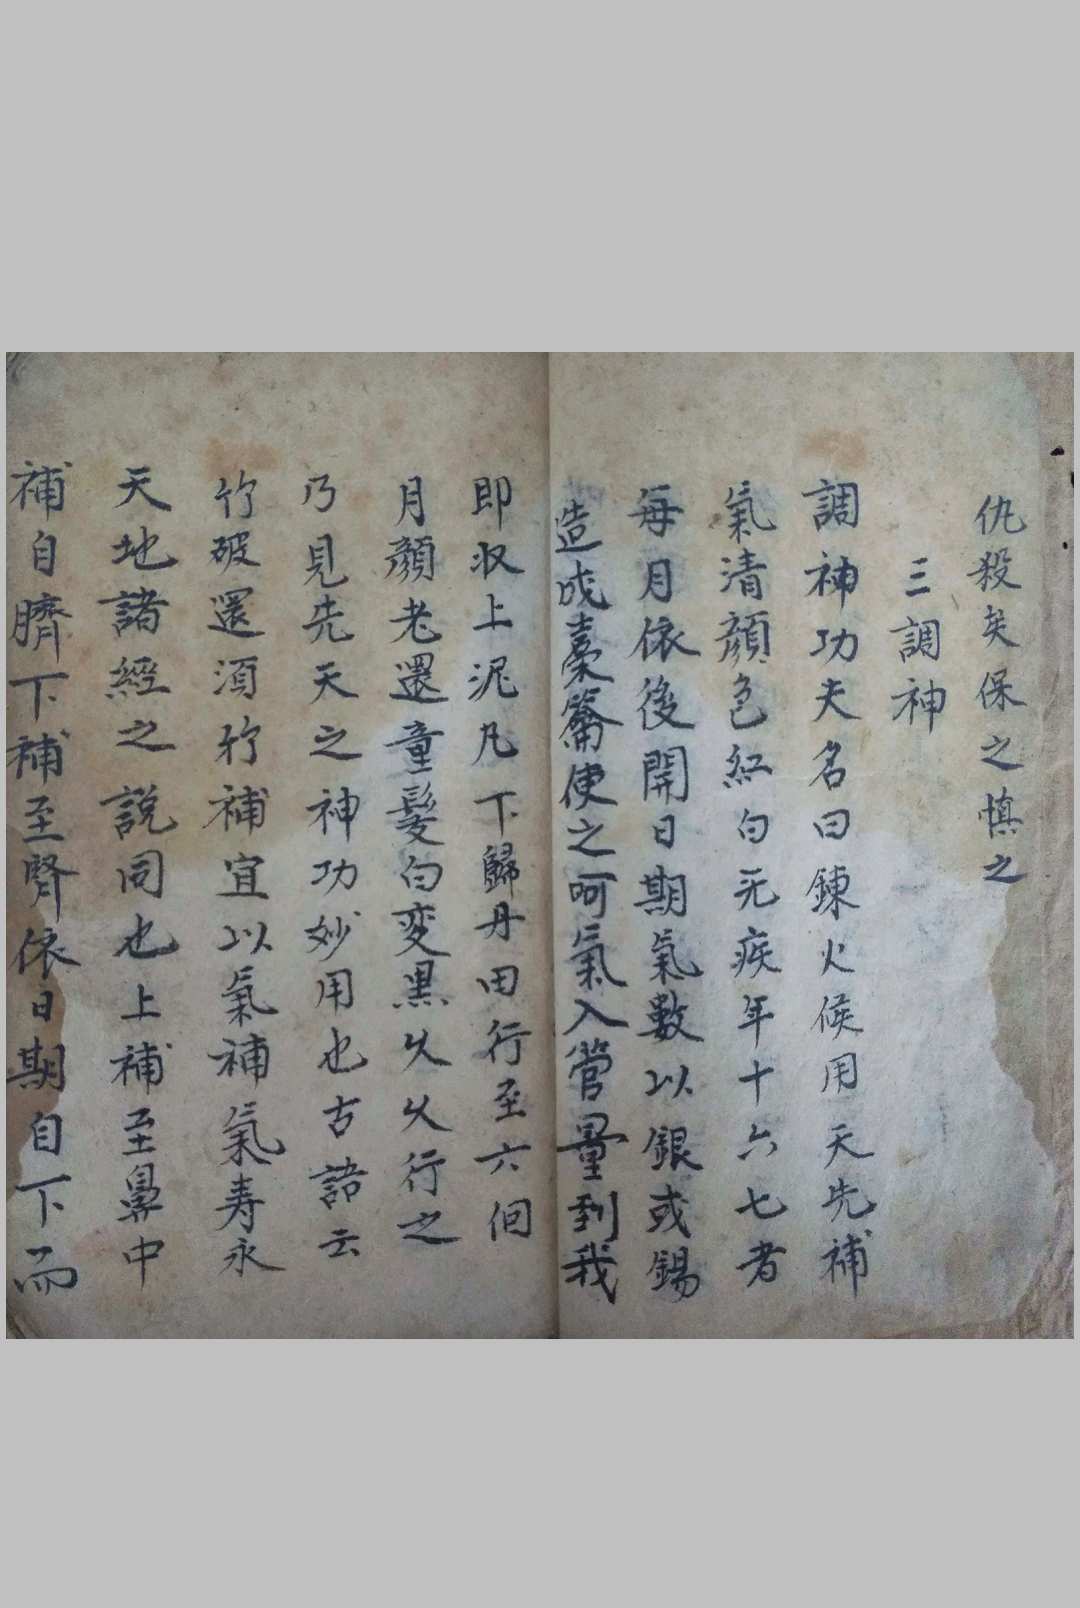 仇殺矣保之慎之
三調神
調神功夫名曰鍊火候用天先補
氣清顔色紅白无疾年十六七者
每月依後開日期氣數以銀或錫
造成橐籥使之呵氣入管量到我
即収上泥凡下歸丹田行至六個
月顔老還童髮白変黒久久行之
乃見先天之神功妙用也古語云
竹破還須竹補宜以氣補氣寿永
天地諸經之說同也上補至鼻中
補自臍下補至腎依日期自下而